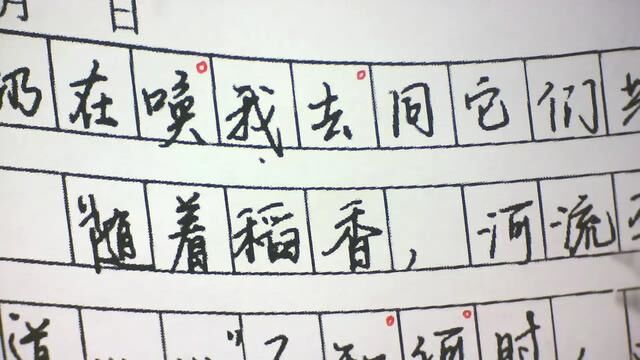 月 日
在唤我去同它们
“随着稻香，河流
道……” 时，